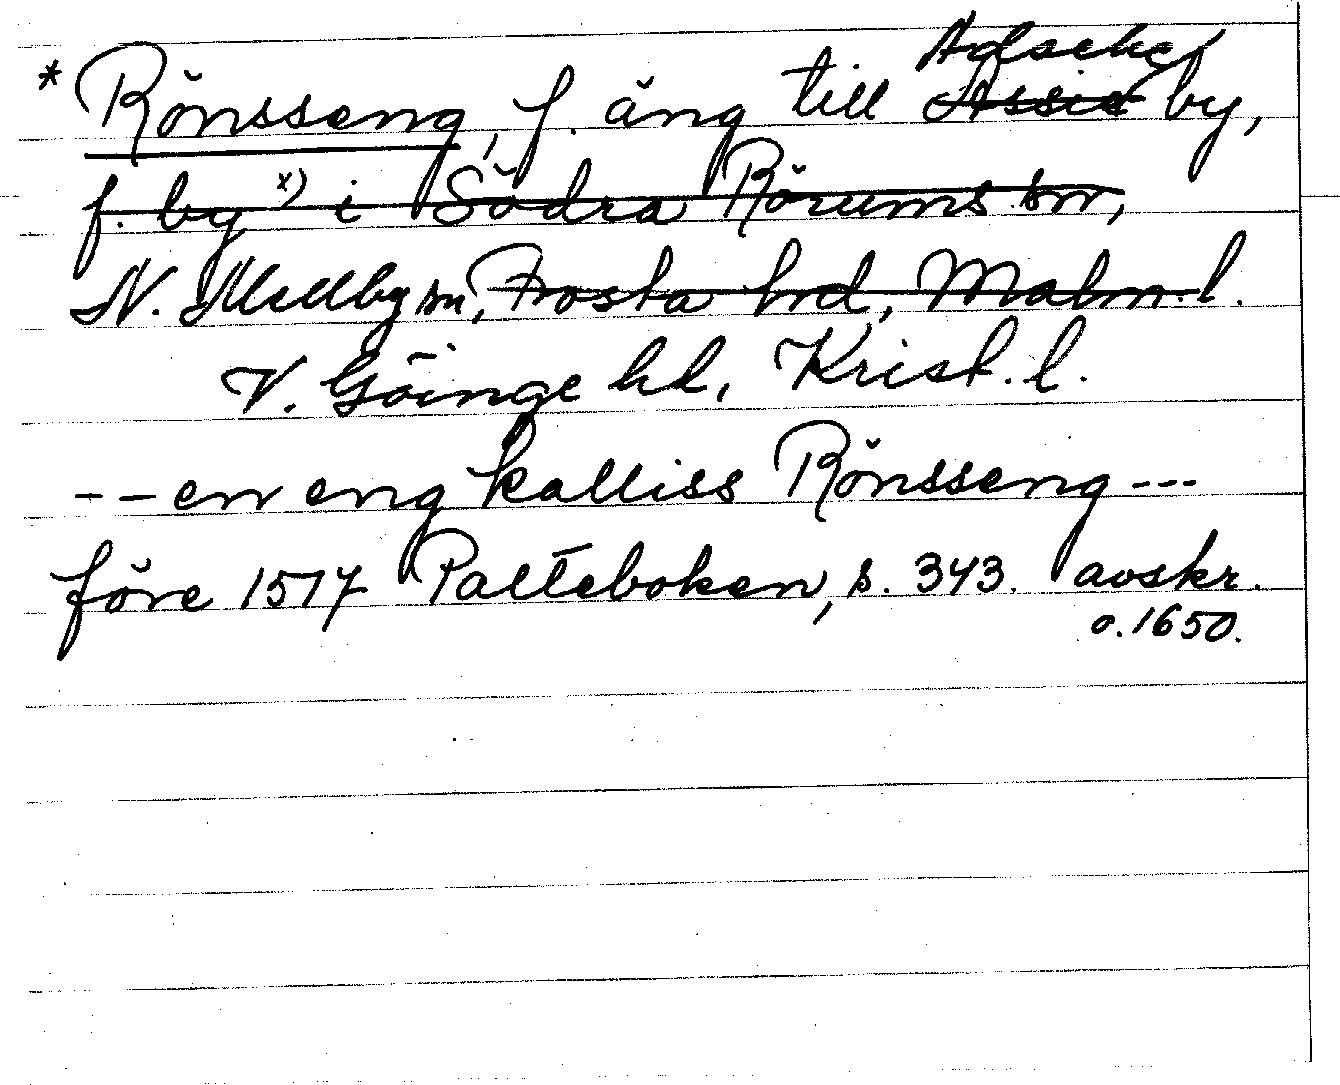 Adseke
* Rönsseng, f. äng till Assie by,
f. by x) i Södra Rörums sn,
N. Mellby sn, Frosta hd, Malm. l.
V. Göinge hd, Krist. l.
-- en eng kalliss Rönsseng ---
före 1517 Palteboken, s. 343. avskr.
o. 1650.